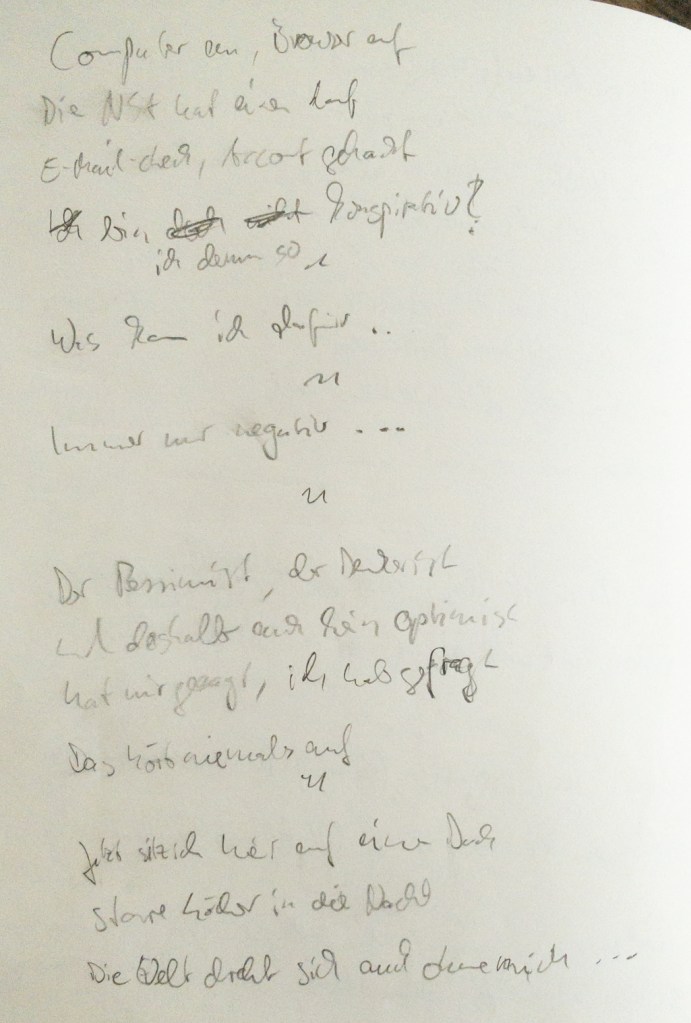 Computer an, Browser auf
Die NSA hat einen Lauf
E-Mail-check, Account gehackt
Ich bin doch nicht konspirativ?
ich denn so
Was kann ich dafür ..
Immer nur negativ ...
Der Pessimist, der Denker ist
und deshalb auch kein Optimist
hat mir gesagt, ich hab gefragt
Das hört niemals auf
Jetzt sitz ich hier auf einem Dach
starre Löcher in die Nacht
Die Welt dreht sich auch ohne mich ...